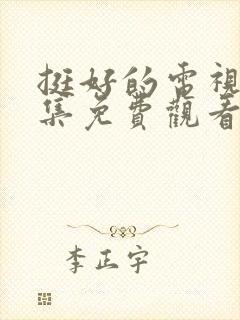 挺好的電視
集免費觀看
李正宇